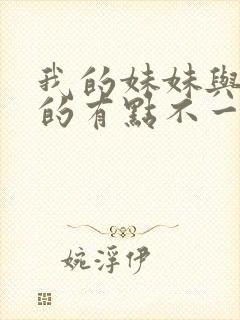 我的妹妹與
的有點不一
婉浮伊